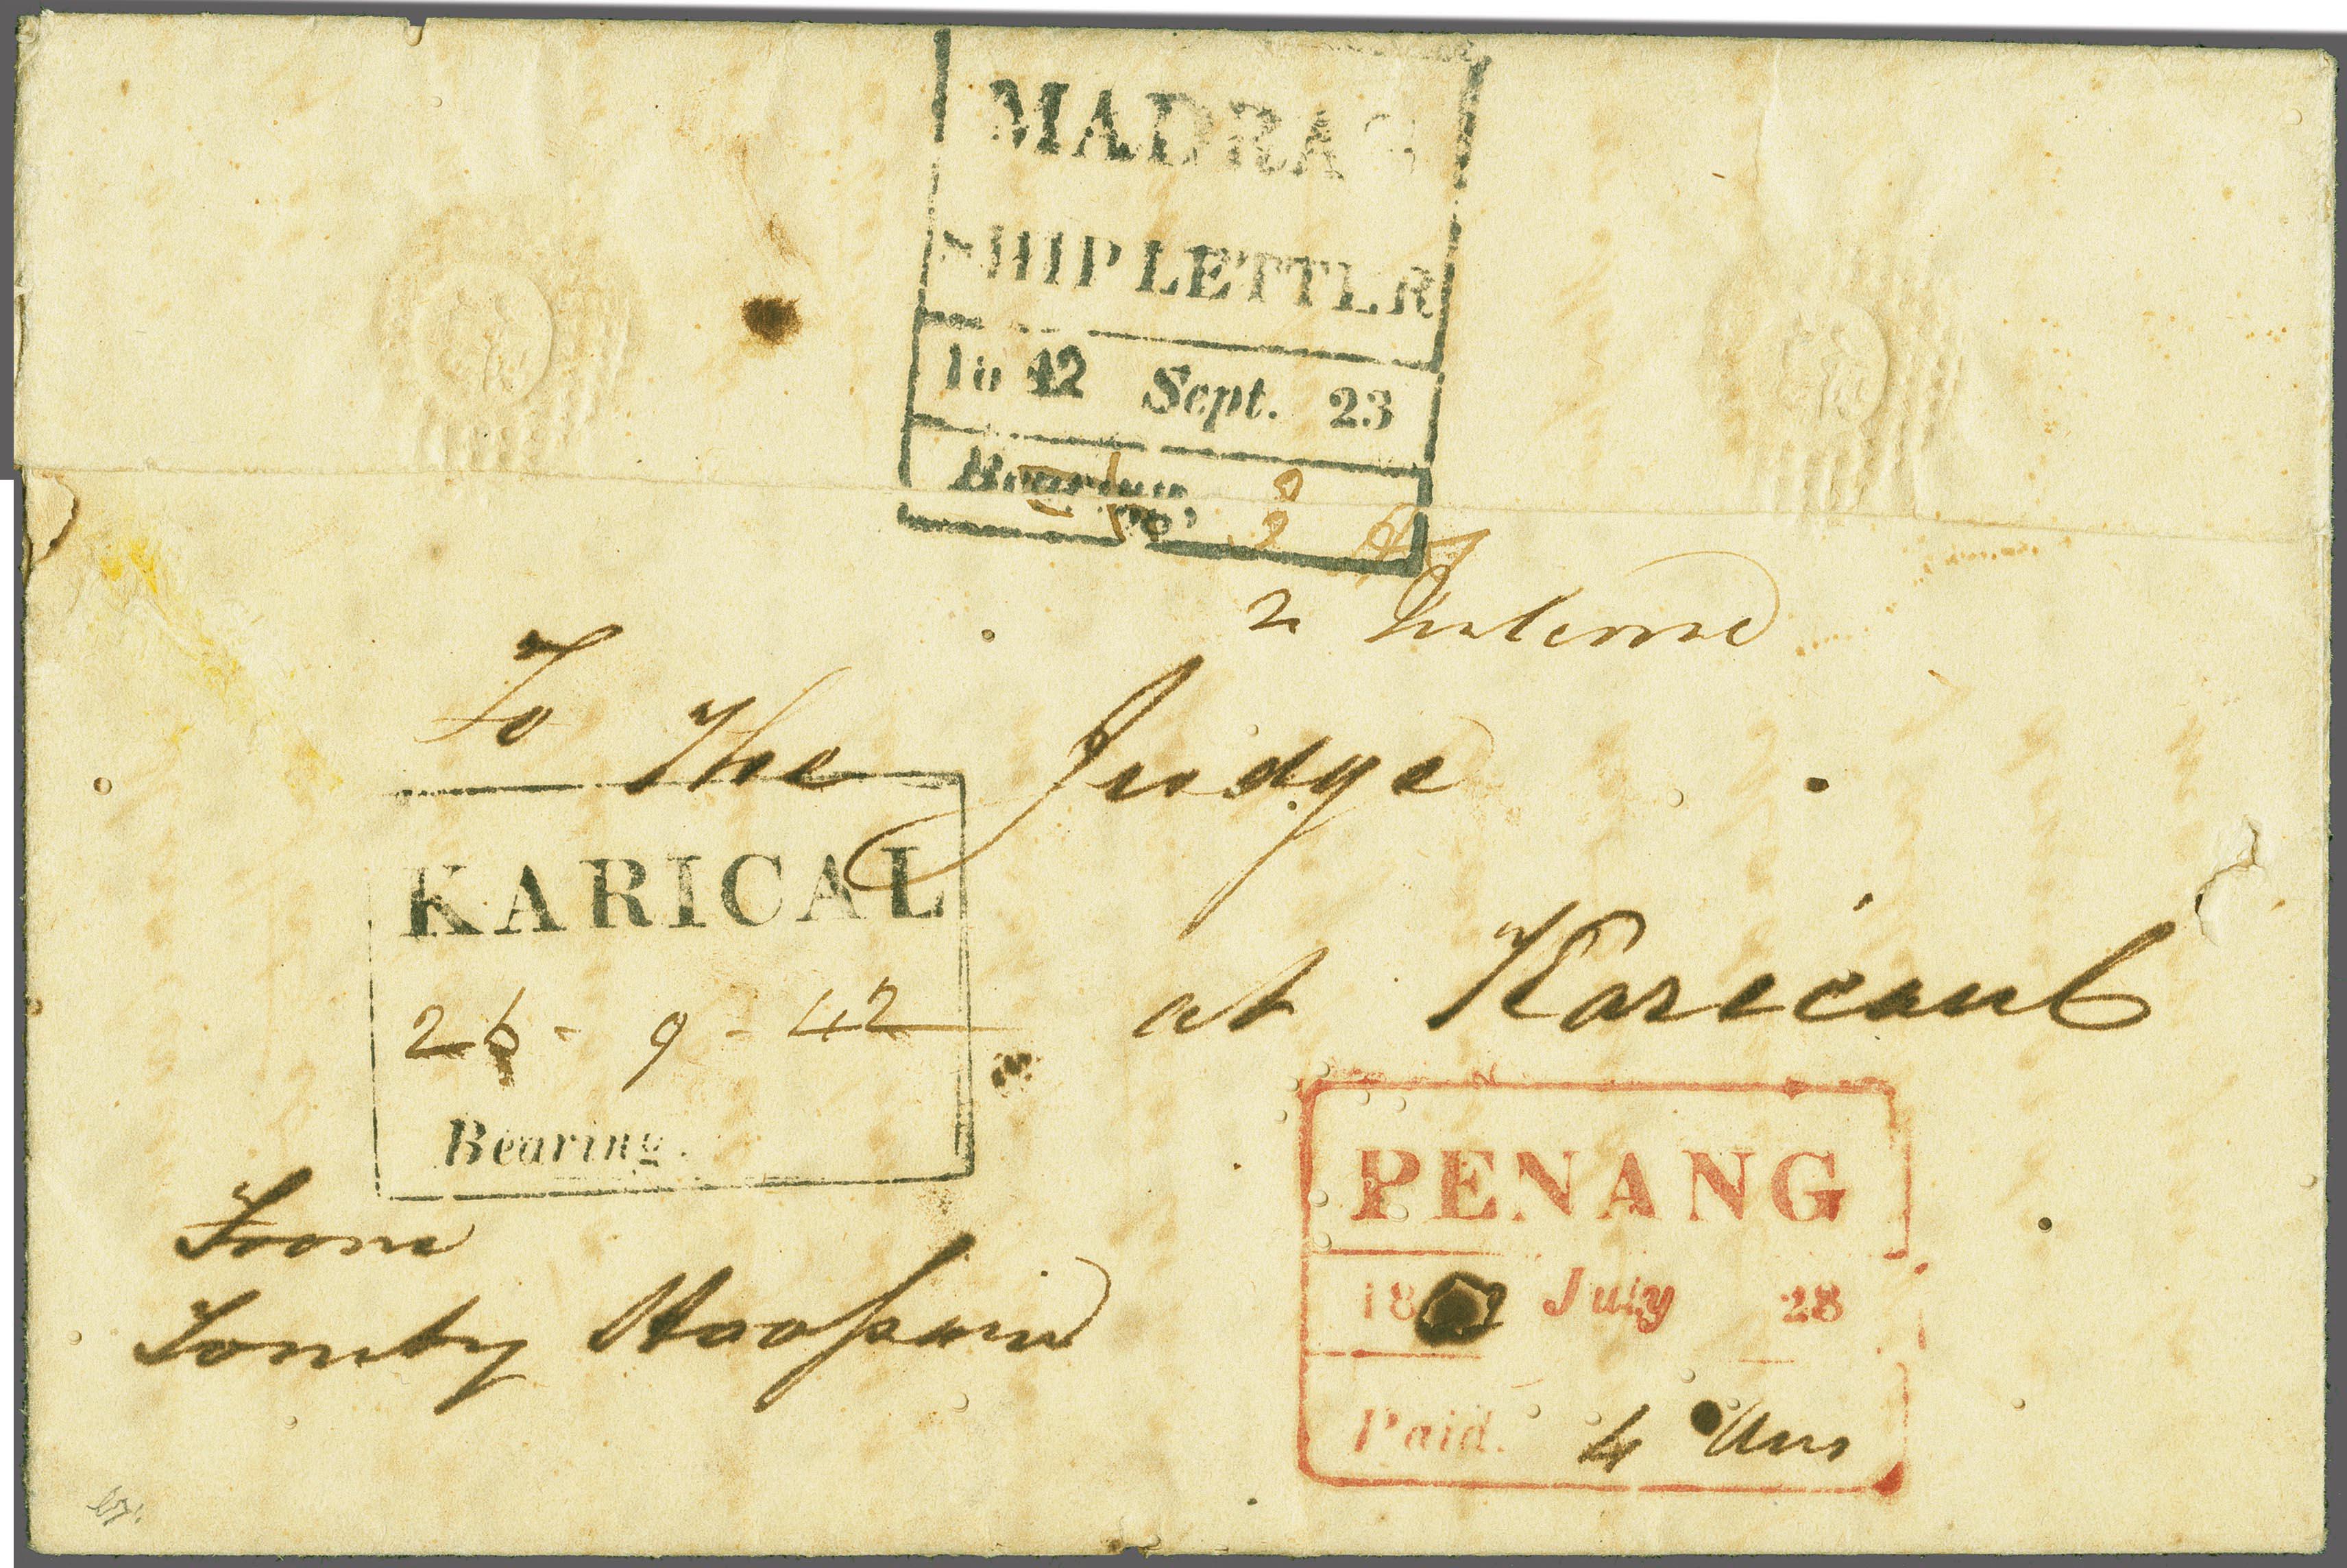 MADRAS
SHIP LETTER
18 42 Sept. 23
Bearing.
2
To
The Judge
KARICAL
at Karicaul
26 - 9 - 42
Bearing.
PENANG
From
18 2 July 28
Tomby
Paid. 4 Ans